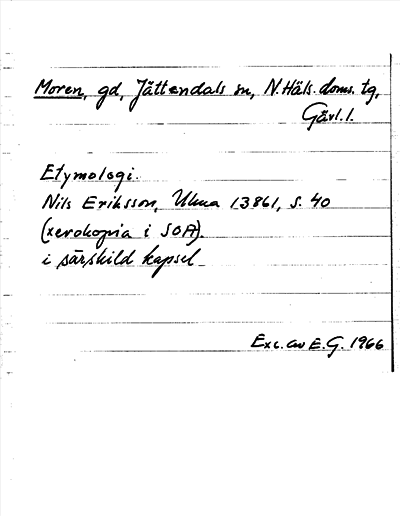 Moren, gd, Jättendals sn, N. Häls. doms. tg,
Gävl. l.
Etymologi.
Nils Eriksson, Ulma 13861, s. 40
(xerokopia i SOA).
i särskild kapsel
Exc. av E. G. 1966